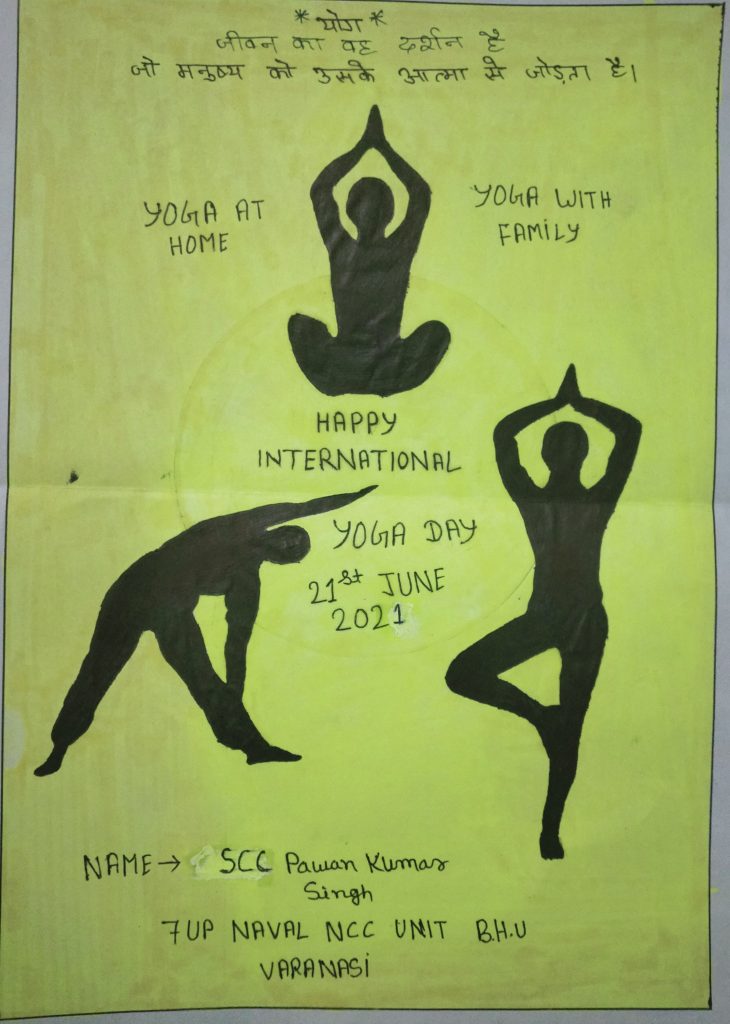 * योग *
जीवन का वह दर्शन है
जो मनुष्य को उसके आत्मा से जोड़ता है।
YOGA AT
HOME
YOGA WITH
FAMILY
HAPPY
INTERNATIONAL
YOGA DAY
21st JUNE
2021
NAME → SCC Pawan Kumar
Singh
7UP NAVAL NCC UNIT B.H.U
VARANASI